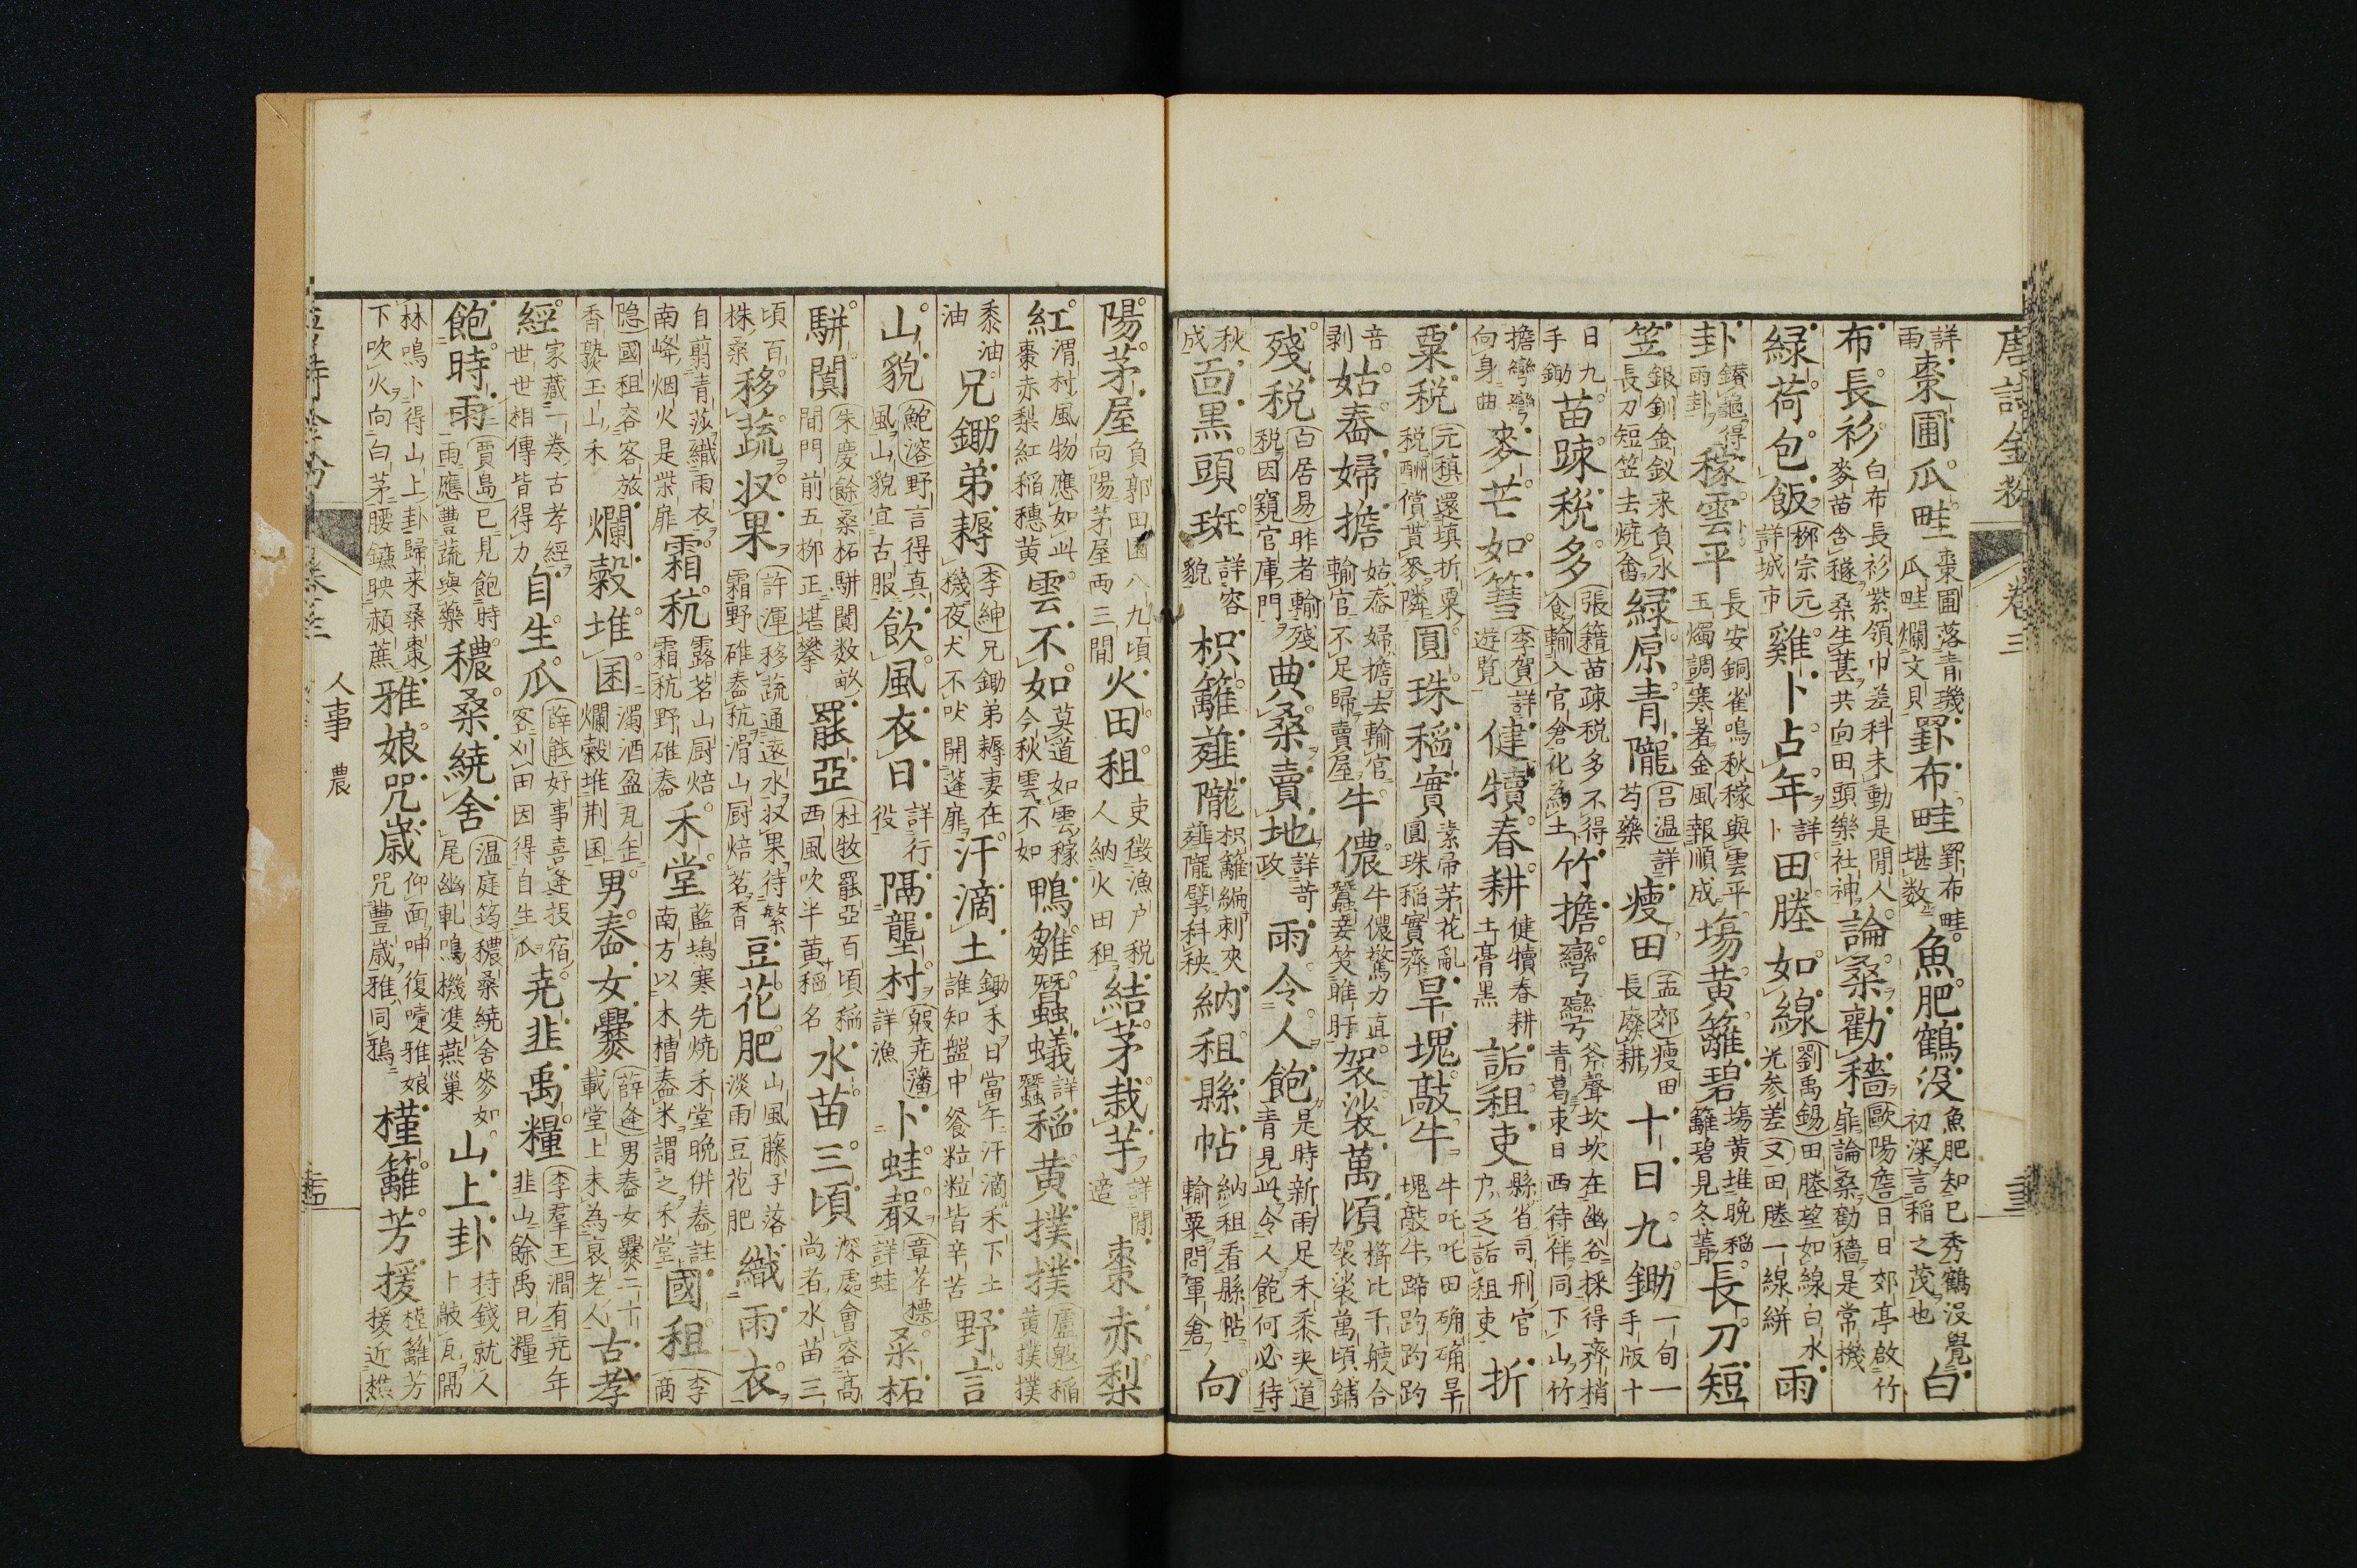 唐詩金粉 卷三
詳雨棗圃瓜畦棗圃落青璣瓜畦爛文貝罫布畦罫布畦堪数魚肥鶴没魚肥知已秀鶴没覺初深言稲之茂也白
布長衫白布長衫紫領巾差科未動是閒人麥苗含穟桑生葚共向田頭樂社神論桑勸穡歐陽詹日日郊亭啟竹扉論桑勸穡是常機
緑荷包飯柳宗元詳城市雞卜占年詳卜田塍如線劉禹錫田塍望如線白水光参差又田塍一線絣雨
卦鑚龜得雨卦稼雲平長安銅雀鳴秋稼與雲平玉燭調寒暑金風報順成塲黄籬碧塲黄堆晩稲籬碧見冬菁長刀短
笠銀釧金釵来負水長刀短笠去焼畬緑原青隴吕温詳芍藥瘦田孟郊瘦田長廢耕十日九鋤一旬一手版十
日九手鋤苗疎税多張籍苗疎税多不得食輸入官倉化為土竹擔彎彎斧聲坎坎在幽谷採得齊梢青葛束日西待伴同下山竹
擔彎彎向身曲麥芒如篲李賀詳遊覧健犢春耕健犢春耕土膏黒詬租吏縣省司刑官户乏詬租吏折
粟税元稹還填折粟税酬償貰麥隣圓珠稲實素帚茅花亂圓珠稲實齊旱塊敲牛牛吒吒田确确旱塊敲牛蹄趵趵趵
音剥姑舂婦擔姑舂婦擔去輸官輸官不足歸賣屋牛儂牛儂驚力直蠶妾笑睢盱袈裟萬頃櫛比千艘合袈裟萬頃鋪
殘税白居易昨者輸殘税因窺官庫門典桑賣地詳苛政雨令人飽是時新雨足禾黍夾道青見此令人飽何必待
秋成面黒頭斑詳容貌枳籬薤隴枳籬編刺夾薤隴擘科秧納租縣帖納租看縣帖輸粟問軍倉向
陽茅屋負郭田園八九頃向陽茅屋兩三間火田租吏徴漁户税人納火田租結茅栽芋詳閒適棗赤梨
紅渭村風物應如此棗赤梨紅稲穗黄雲不如莫道如雲稼今秋雲不如鴨雛蠶蟻詳蠶稲黄撲撲盧殷稲黄撲撲
黍油黍油兄鋤弟耨李紳兄鋤弟耨妻在機夜犬不吠開蓬扉汗滴土鋤禾日當午汗滴禾下土誰知盤中飡粒粒皆辛苦野言
山貌鮑溶野言得真風山貌宜古服飲風衣日詳行役隔壟村殷尭藩詳漁卜蛙聲章孝標詳蛙桑柘
駢闐朱慶餘桑柘駢闐数畝間門前五栁正堪攀罷亞杜牧罷亞百頃稲西風吹半黄稲名水苗三頃深處會容髙尚者水苗三
頃百株桑移蔬収果許渾移蔬通遠水収果待繁霜野碓舂秔滑山厨焙茗香豆花肥山風藤子落淡雨豆花肥織雨衣
自剪青莎織雨衣南峰烟火是柴扉霜秔露茗山厨焙霜秔野碓舂禾堂藍塢寒先焼禾堂晩併舂註南方以木槽舂米謂之禾堂國租李商
隠國租容客旅香熟玉山禾爛穀堆囷濁酒盈瓦缶爛穀堆荆囷男舂女爨薛逢男舂女爨二十載堂上未為衰老人古孝
經家藏一巻古孝經世世相傳皆得力自生瓜薛能好事喜逢投宿客刈田因得自生瓜尭韭禹糧李羣玉澗有尭年韭山餘禹日糧
飽時雨賈島已見飽時雨應豐蔬與藥穠桑繞舍温庭筠穠桑繞舍麥如尾幽軋鳴機雙燕巢山上卦持錢就人卜敲瓦隔
林鳴卜得山上卦歸来桑棗下吹火向白茅腰鐮映頳蔗雅娘咒歳仰面呻復嚏雅娘咒豐歳雅同鴉槿籬芳援槿籬芳援近樵
人事 農